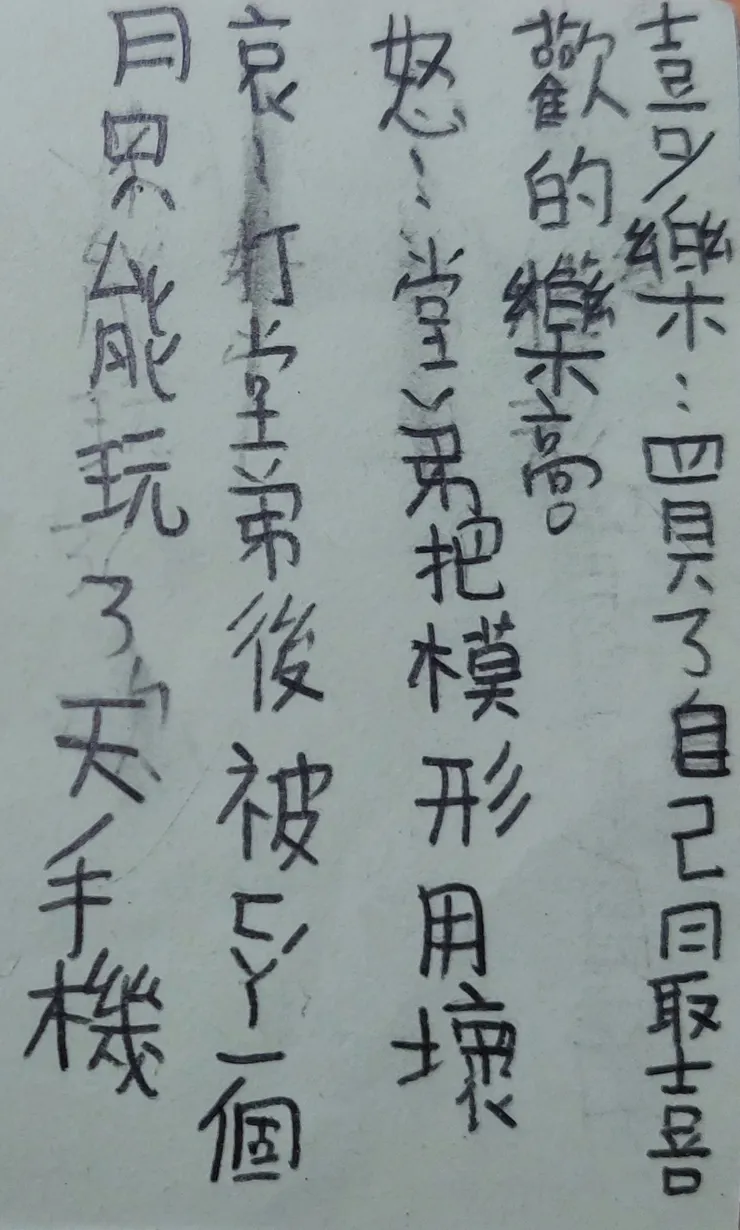 喜樂：買了自己最喜
歡的樂高
怒：堂弟把模形用壞
哀：打堂弟後被ㄈㄚˊ一個
月只能玩3天手機